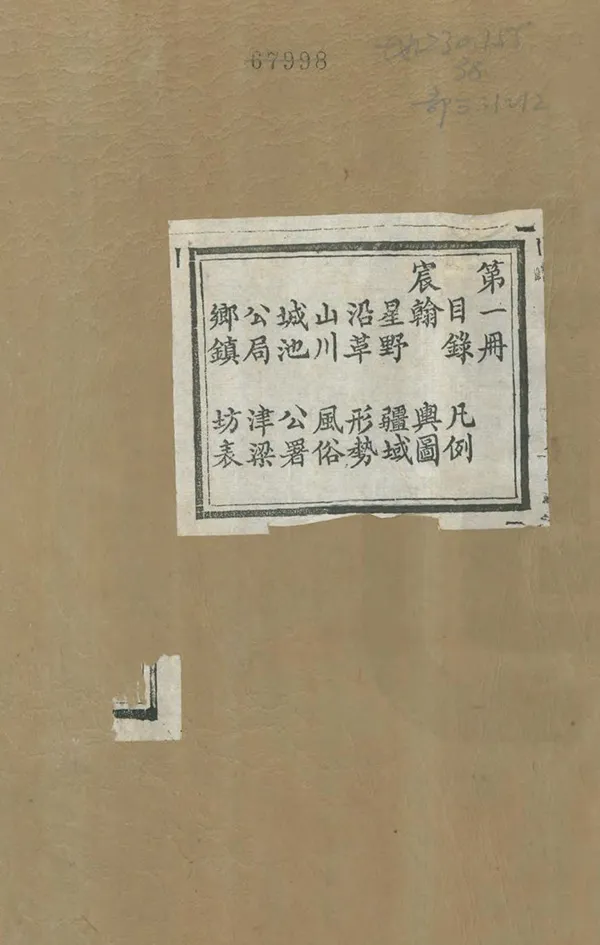 67998
第一冊
目錄 凡例
宸翰 輿圖
星野 疆域
沿革 形勢
山川 風俗
城池 公署
公局 津梁
鄉鎮 坊表